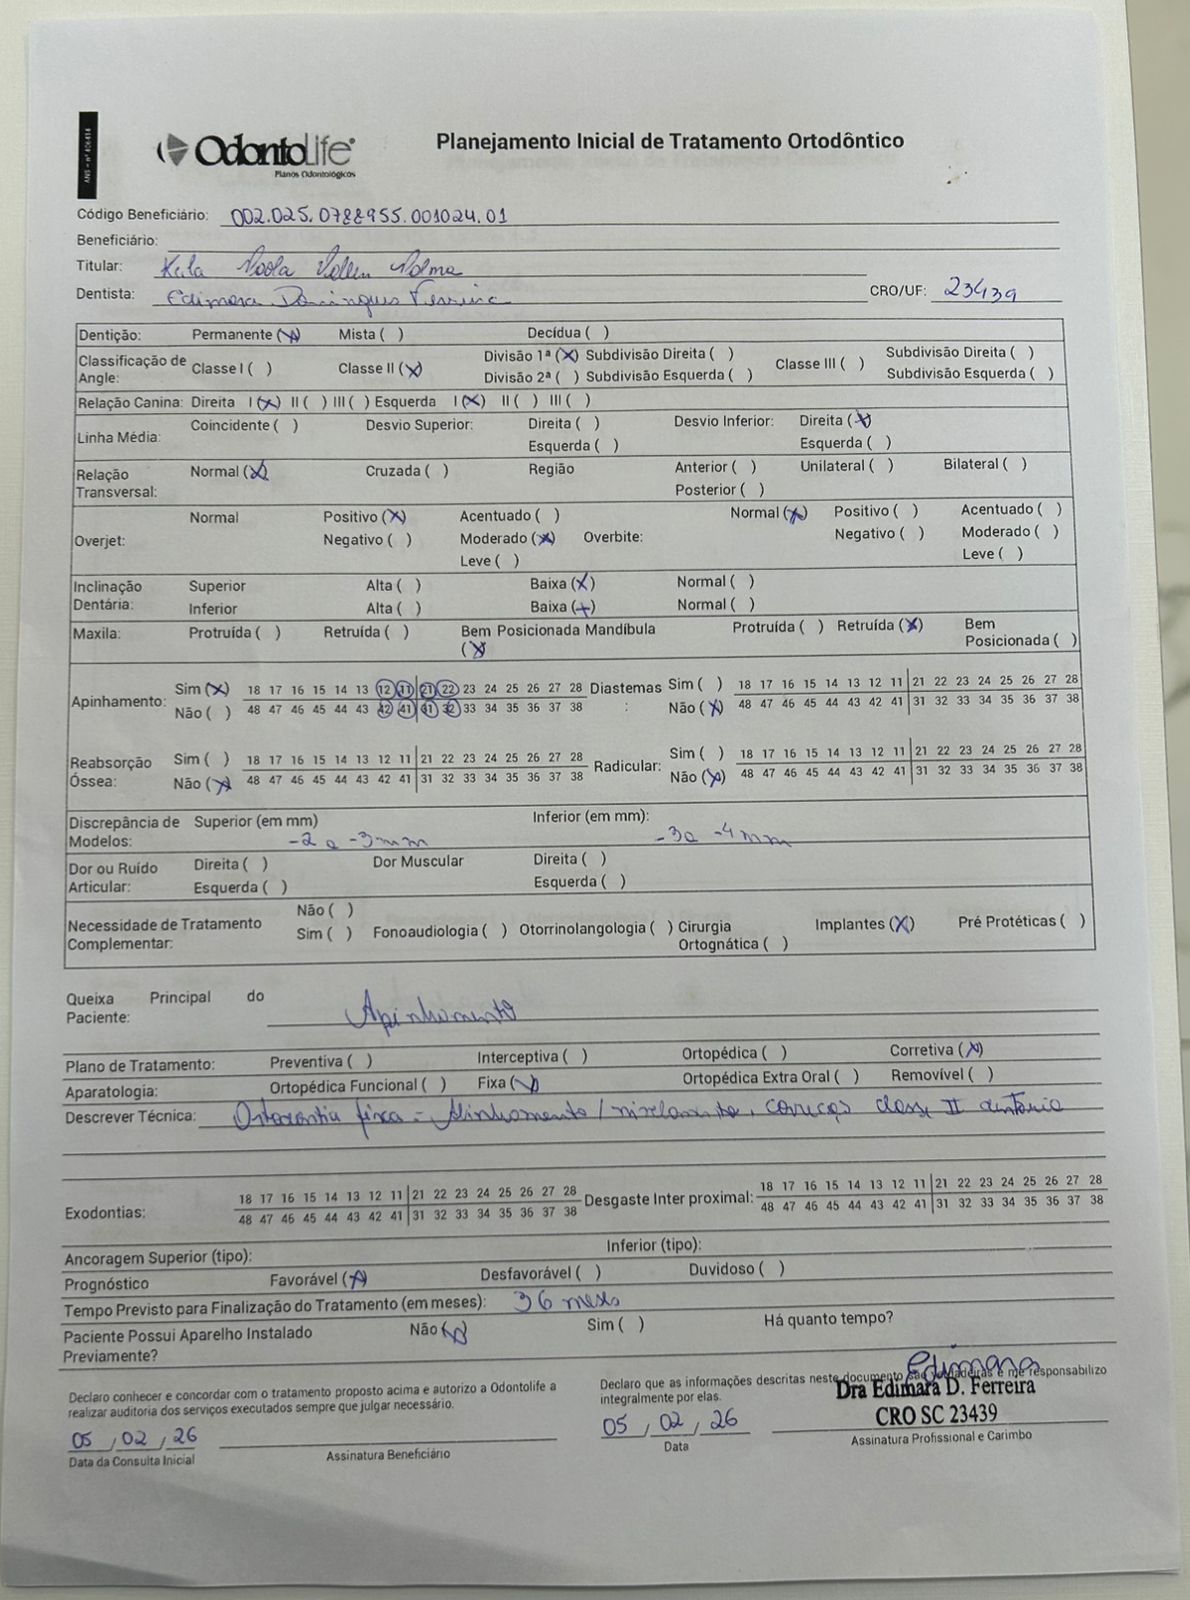 ANS - nº 406414
OdontoLife®
Planos Odontológicos
Planejamento Inicial de Tratamento Ortodôntico
Código Beneficiário: 002.025.0788955.001024.01
Beneficiário:
Titular:
Dentista: Domingues Ferreira CRO/UF: 23439
Dentição: Permanente (X) Mista ( ) Decídua ( )
Classificação de Angle: Classe I ( ) Classe II (X) Divisão 1ª (X) Subdivisão Direita ( ) Classe III ( ) Subdivisão Direita ( )
Divisão 2ª ( ) Subdivisão Esquerda ( ) Subdivisão Esquerda ( )
Relação Canina: Direita I (X) II ( ) III ( ) Esquerda I (X) II ( ) III ( )
Linha Média: Coincidente ( ) Desvio Superior: Direita ( ) Desvio Inferior: Direita (X)
Esquerda ( ) Esquerda ( )
Relação Transversal: Normal (X) Cruzada ( ) Região Anterior ( ) Unilateral ( ) Bilateral ( )
Posterior ( )
Overjet: Normal Positivo (X) Acentuado ( ) Overbite: Normal (X) Positivo ( ) Acentuado ( )
Negativo ( ) Moderado (X) Negativo ( ) Moderado ( )
Leve ( ) Leve ( )
Inclinação Dentária: Superior Alta ( ) Baixa (X) Normal ( )
Inferior Alta ( ) Baixa (+) Normal ( )
Maxila: Protruída ( ) Retruída ( ) Bem Posicionada (X) Mandíbula Protruída ( ) Retruída (X) Bem Posicionada ( )
Apinhamento: Sim (X) 18 17 16 15 14 13 12 11 21 22 23 24 25 26 27 28 Diastemas: Sim ( ) 18 17 16 15 14 13 12 11 21 22 23 24 25 26 27 28
Não ( ) 48 47 46 45 44 43 42 41 31 32 33 34 35 36 37 38 Não (X) 48 47 46 45 44 43 42 41 31 32 33 34 35 36 37 38
Reabsorção Óssea: Sim ( ) 18 17 16 15 14 13 12 11 21 22 23 24 25 26 27 28 Radicular: Sim ( ) 18 17 16 15 14 13 12 11 21 22 23 24 25 26 27 28
Não (X) 48 47 46 45 44 43 42 41 31 32 33 34 35 36 37 38 Não (X) 48 47 46 45 44 43 42 41 31 32 33 34 35 36 37 38
Discrepância de Modelos: Superior (em mm) -2 a -3mm Inferior (em mm): -3 a -4mm
Dor ou Ruído Articular: Direita ( ) Dor Muscular Direita ( )
Esquerda ( ) Esquerda ( )
Necessidade de Tratamento Complementar: Não ( )
Sim ( ) Fonoaudiologia ( ) Otorrinolangologia ( ) Cirurgia Ortognática ( ) Implantes (X) Pré Protéticas ( )
Queixa Principal do Paciente: Apinhamento
Plano de Tratamento: Preventiva ( ) Interceptiva ( ) Ortopédica ( ) Corretiva (X)
Aparatologia: Ortopédica Funcional ( ) Fixa (X) Ortopédica Extra Oral ( ) Removível ( )
Descrever Técnica: Ortodontia fixa - Alinhamento / nivelamento, correção classe II dentária
Exodontias: 18 17 16 15 14 13 12 11 21 22 23 24 25 26 27 28 Desgaste Inter proximal: 18 17 16 15 14 13 12 11 21 22 23 24 25 26 27 28
48 47 46 45 44 43 42 41 31 32 33 34 35 36 37 38 48 47 46 45 44 43 42 41 31 32 33 34 35 36 37 38
Ancoragem Superior (tipo): Inferior (tipo):
Prognóstico Favorável (X) Desfavorável ( ) Duvidoso ( )
Tempo Previsto para Finalização do Tratamento (em meses): 36 meses
Paciente Possui Aparelho Instalado Previamente? Não (X) Sim ( ) Há quanto tempo?
Declaro conhecer e concordar com o tratamento proposto acima e autorizo a Odontolife a
realizar auditoria dos serviços executados sempre que julgar necessário.
Declaro que as informações descritas neste documento são verdadeiras e me responsabilizo
integralmente por elas.
Edimara
Dra Edimara D. Ferreira
CRO SC 23439
05 / 02 / 26
Data da Consulta Inicial
Assinatura Beneficiário
05 / 02 / 26
Data
Assinatura Profissional e Carimbo